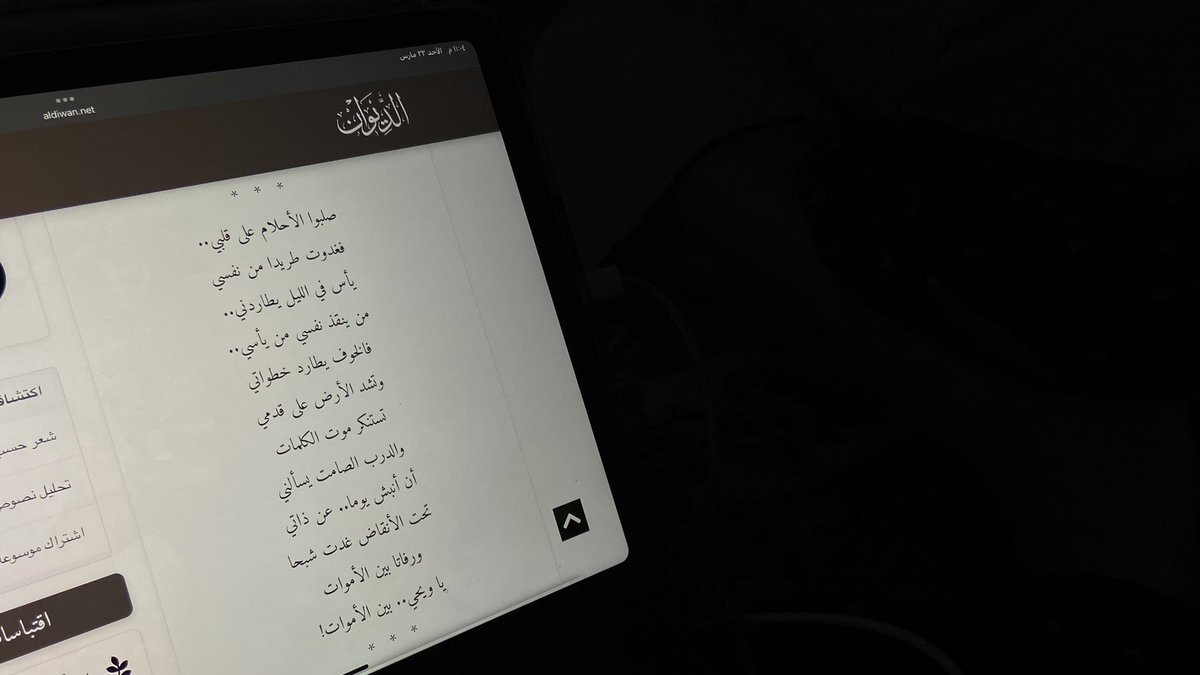 ١١:٠٤ م الأحد ٢٣ مارس
aldiwan.net
الدِّيْوَانْ
* * *
صلبوا الأحلام على قلبي..
فغدوت طريدا من نفسي
يأس في الليل يطاردني..
من ينقذ نفسي من يأسي..
فالخوف يطارد خطواتي
وتشد الأرض على قدمي
تستنكر موت الكلمات
والدرب الصامت يسألني
أن أنبش يوما.. عن ذاتي
تحت الأنقاض غدت شبحا
ورفاتا بين الأموات
يا ويحي.. بين الأموات!
* * *
شعر
تحليل
اشتراك